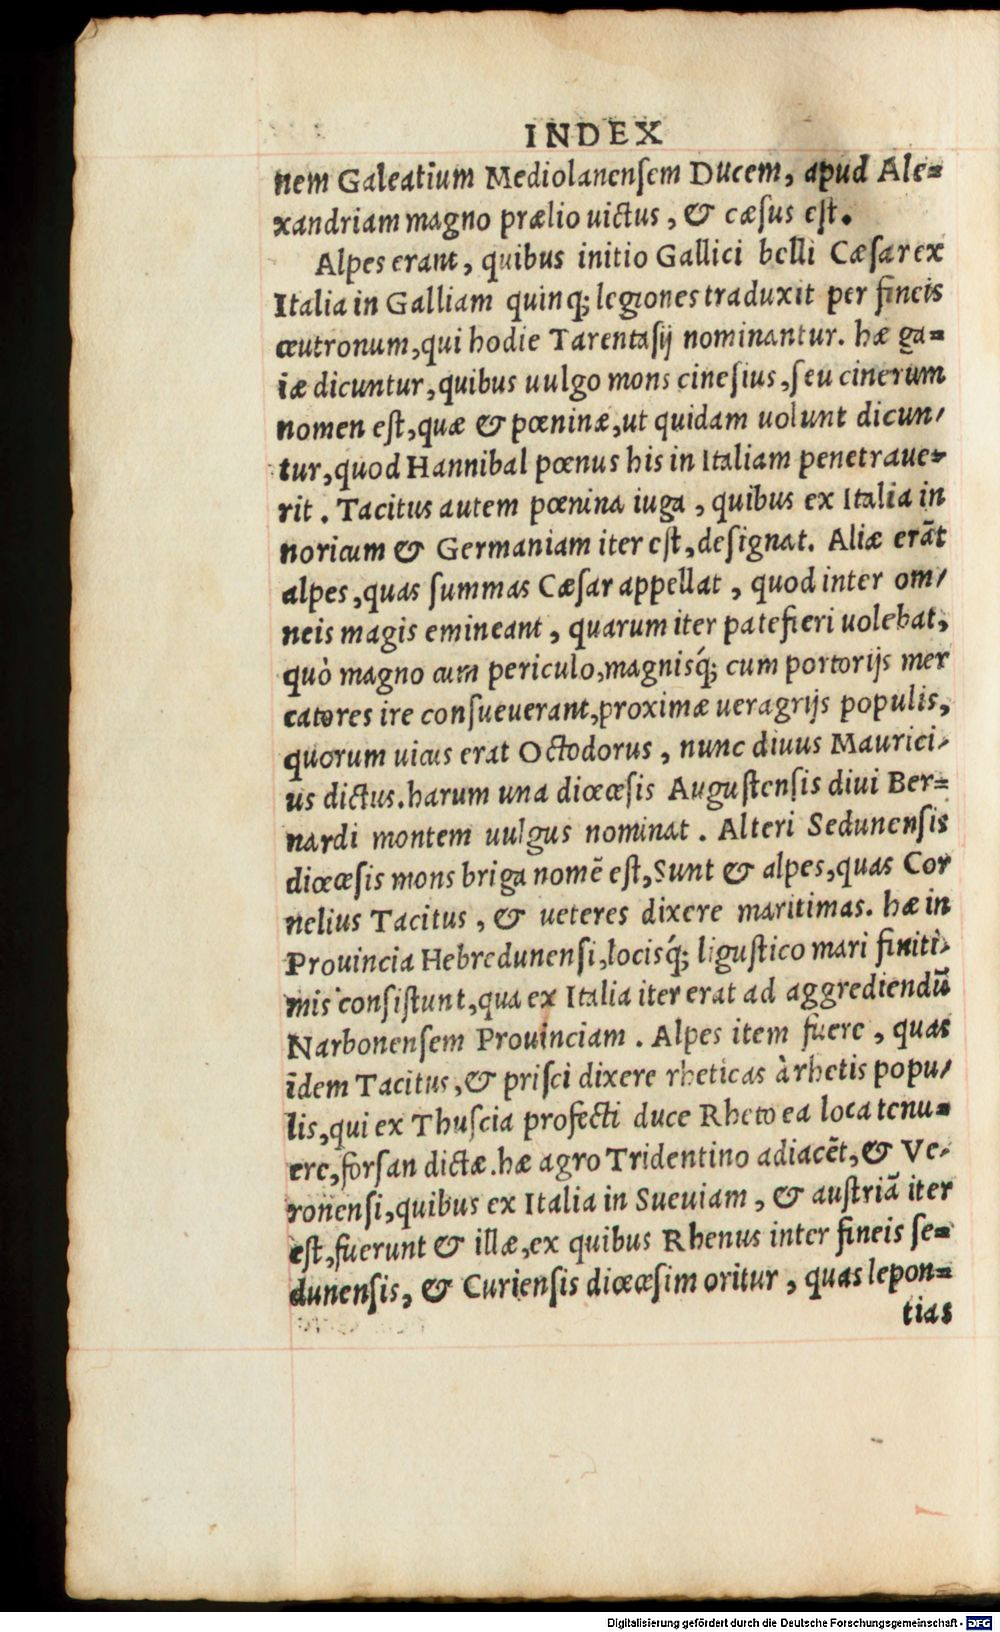 INDEX
nem Galeatium Mediolanenſem Ducem, apud Ale=
xandriam magno prælio uictus, & cæſus eſt.
Alpes erant, quibus initio Gallici belli Cæſar ex
Italia in Galliam quinq; legiones traduxit per fineis
ceutronum, qui hodie Tarentaſij nominantur. hæ ga=
iæ dicuntur, quibus uulgo mons cineſius, ſeu cinerum
nomen eſt, quæ & pœninæ, ut quidam uolunt dicun/
tur, quod Hannibal pœnus his in Italiam penetraue=
rit. Tacitus autem pœnina iuga, quibus ex Italia in
noricum & Germaniam iter eſt, deſignat. Aliæ erãt
alpes, quas ſummas Cæſar appellat, quod inter om/
neis magis emineant, quarum iter patefieri uolebat,
quò magno cum periculo, magnisq́; cum portorijs mer
catores ire conſueuerant, proximæ ueragrijs populis,
quorum uicus erat Octodorus, nunc diuus Maurici/
us dictus. harum una diœcœſis Auguſtenſis diui Ber=
nardi montem uulgus nominat. Alteri Sedunenſis
diœcœſis mons briga nomẽ eſt, Sunt & alpes, quas Cor
nelius Tacitus, & ueteres dixere maritimas. hæ in
Prouincia Hebredunenſi, locisq́; liguſtico mari finiti/
mis conſiſtunt, qua ex Italia iter erat ad aggrediendũ
Narbonenſem Prouinciam. Alpes item fuere, quas
ĩdem Tacitus, & priſci dixere rheticas à rhetis popu/
lis, qui ex Thuſcia profecti duce Rheto ea loca tenu=
ere, forſan dictæ. hæ agro Tridentino adiacẽt, & Ve/
ronenſi, quibus ex Italia in Sueuiam, & auſtriã iter
eſt, fuerunt & illæ, ex quibus Rhenus inter fineis ſe=
dunenſis, & Curienſis diœcœſim oritur, quas lepon=
tias
Digitalisierung gefördert durch die Deutsche Forschungsgemeinschaft - DFG